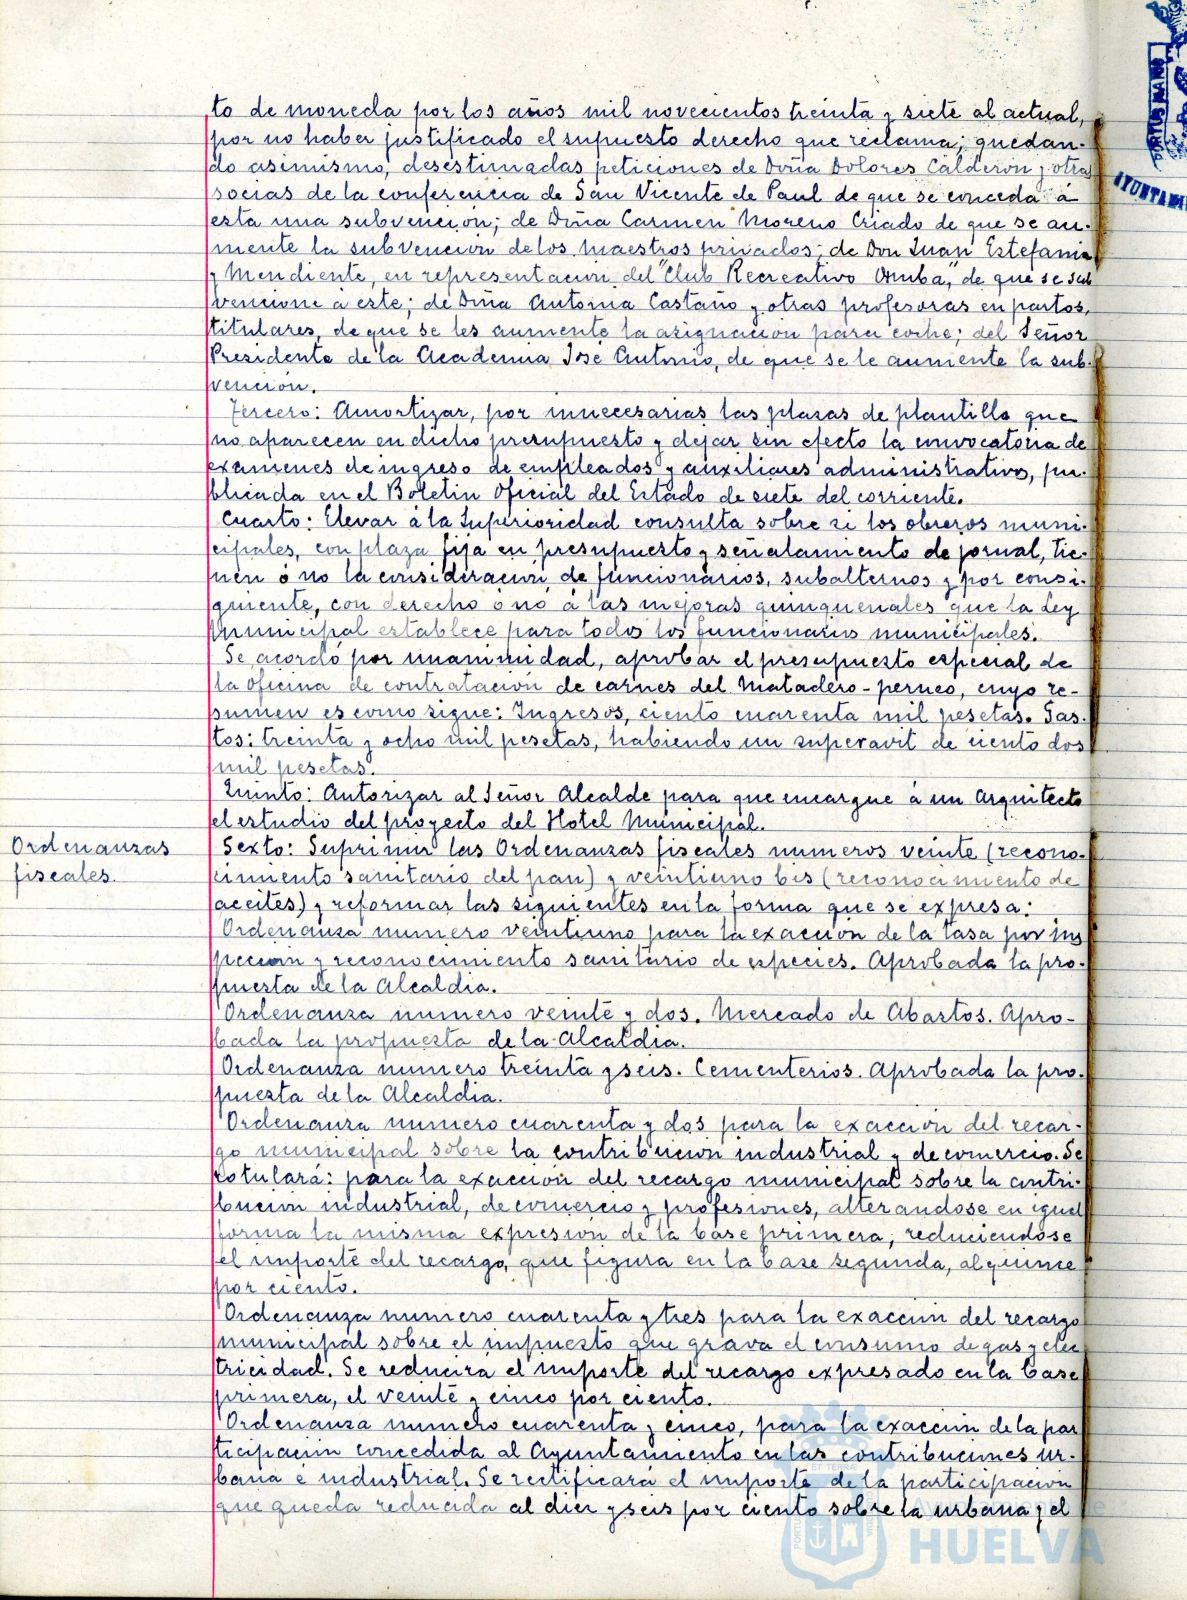 to de moneda por los años mil novecientos treinta y siete al actual,
por no haber justificado el supuesto derecho que reclama; quedan-
do asimismo, desestimadas peticiones de Doña Dolores Calderón y otras
socias de la conferencia de San Vicente de Paul de que se conceda á
esta una subvención; de Doña Carmen Moreno Criado de que se au-
mente la subvención de los maestros privados; de Don Juan Estefania
y Mendiente, en representación del "Club Recreativo Onuba", de que se sub
vencione á este; de Doña Antonia Castaño y otras profesoras en partos,
titulares, de que se les aumente la asignación para coche; del Señor
Presidente de la Academia José Antonio, de que se le aumente la sub-
vención.
Tercero: Amortizar, por innecesarias las plazas de plantilla que
no aparecen en dicho presupuesto y dejar sin efecto la convocatoria de
examenes de ingreso de empleados y auxiliares administrativos, pu-
blicada en el Boletin Oficial del Estado de siete del corriente.
Cuarto: Elevar á la Superioridad consulta sobre si los obreros muni-
cipales, con plaza fija en presupuesto y señalamiento de jornal, tie-
nen ó no la consideración de funcionarios, subalternos y por consi-
guiente, con derecho ó nó á las mejoras quinquenales que la Ley
Municipal establece para todos los funcionarios municipales.
Se acordó por unanimidad, aprobar el presupuesto especial de
la oficina de contratación de carnes del Matadero-perneo, cuyo re-
sumen es como sigue: Ingresos, ciento cuarenta mil pesetas. Gas-
tos: treinta y ocho mil pesetas, habiendo un superavit de ciento dos
mil pesetas.
Quinto: Autorizar al Señor Alcalde para que encargue á un Arquitecto
el estudio del proyecto del Hotel Municipal.
Ordenanzas
fiscales.
Sexto: Suprimir las Ordenanzas fiscales numeros veinte (recono-
cimiento sanitario del pan) y veintiuno bis (reconocimiento de
aceites) y reformar las siguientes en la forma que se expresa:
Ordenanza numero veintiuno para la exacción de la tasa por ins
pección y reconocimiento sanitario de especies. Aprobada la pro-
puesta de la Alcaldia.
Ordenanza numero veinte y dos. Mercado de Abastos. Apro-
bada la propuesta de la Alcaldia.
Ordenanza numero treinta y seis. Cementerios. Aprobada la pro-
puesta de la Alcaldia.
Ordenanza numero cuarenta y dos para la exacción del recar-
go municipal sobre la contribución industrial y de comercio. Se
rotulará: para la exacción del recargo municipal sobre la contri-
bución industrial, de comercio y profesiones, alterandose en igual
forma la misma expresión de la base primera; reduciendose
el importe del recargo, que figura en la base segunda, al quince
por ciento.
Ordenanza numero cuarenta y tres para la exacción del recargo
municipal sobre el impuesto que grava el consumo de gas y elec
tricidad. Se reducira el importe del recargo expresado en la base
primera, el veinte y cinco por ciento.
Ordenanza numero cuarenta y cinco, para la exacción de la par
ticipación concedida al Ayuntamiento en las contribuciones ur-
bana e industrial. Se rectificará el importe de la participación
que queda reducida al diez y seis por ciento sobre la urbana y el
HUELVA